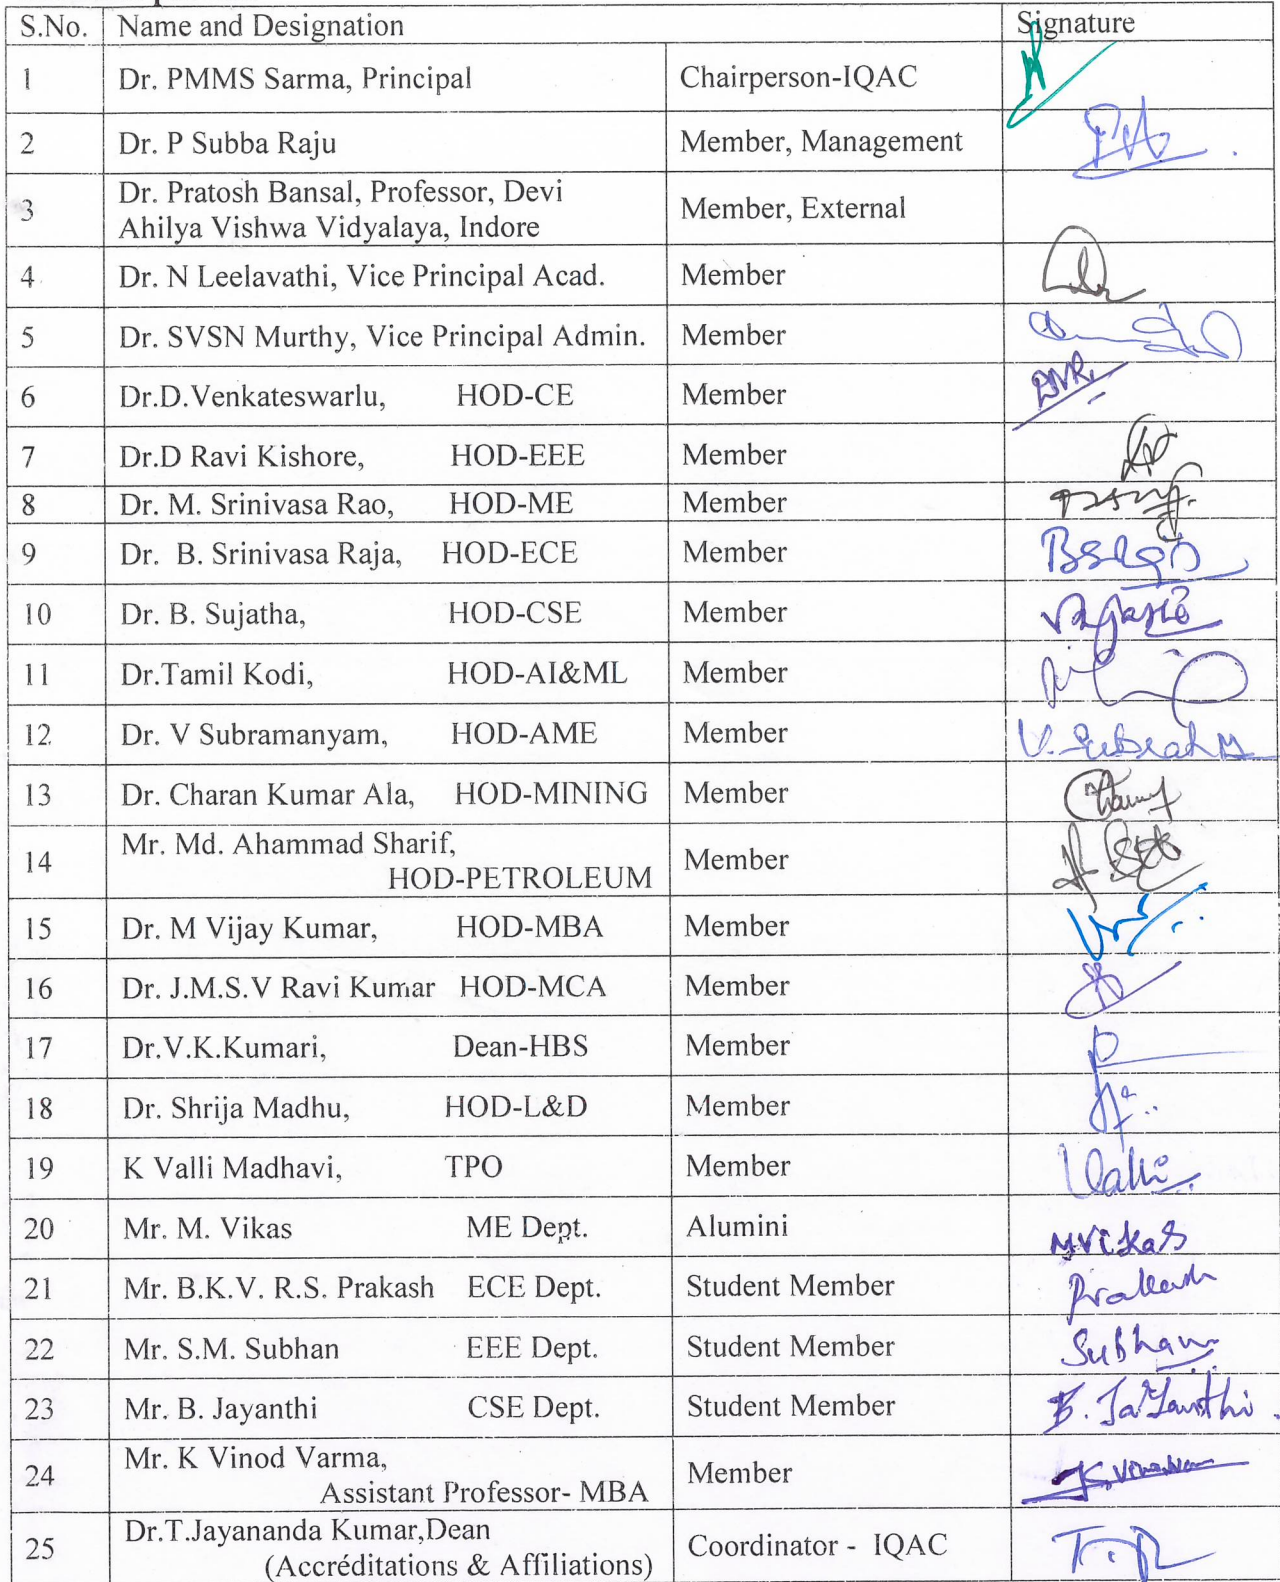 S.No. Name and Designation Signature
1 Dr. PMMS Sarma, Principal Chairperson-IQAC
2 Dr. P Subba Raju Member, Management
Dr. Pratosh Bansal, Professor, Devi
3 Member, External
Ahilya Vishwa Vidyalaya, Indore
4 Dr. N Leelavathi, Vice Principal Acad. Member
5 Dr. SVSN Murthy, Vice Principal Admin. Member
6 Dr.D.Venkateswarlu, HOD-CE Member
7 Dr.D Ravi Kishore, HOD-EEE Member
8 Dr. M. Srinivasa Rao, HOD-ME Member
9 Dr. B. Srinivasa Raja, HOD-ECE Member
10 Dr. B. Sujatha, HOD-CSE Member
11 Dr.Tamil Kodi, HOD-AI&ML Member
12 Dr. V Subramanyam, HOD-AME Member
13 Dr. Charan Kumar Ala, HOD-MINING Member
Mr. Md. Ahammad Sharif,
14 Member
HOD-PETROLEUM
15 Dr. M Vijay Kumar, HOD-MBA Member
16 Dr. J.M.S.V Ravi Kumar HOD-MCA Member
17 Dr.V.K.Kumari, Dean-HBS Member
18 Dr. Shrija Madhu, HOD-L&D Member
19 K Valli Madhavi, TPO Member Valli
20 Mr. M. Vikas ME Dept. Alumini M.Vikas
21 Mr. B.K.V. R.S. Prakash ECE Dept. Student Member Prakash
22 Mr. S.M. Subhan EEE Dept. Student Member Subhan
23 Mr. B. Jayanthi CSE Dept. Student Member B. Jayanthi
Mr. K Vinod Varma,
24 Member
Assistant Professor- MBA
Dr.T.Jayananda Kumar,Dean
25 Coordinator - IQAC
(Accréditations & Affiliations)